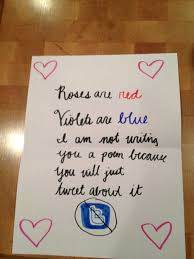 Roses are red
Violets are blue
I am not writing
you a poem because
you will just
tweet about it